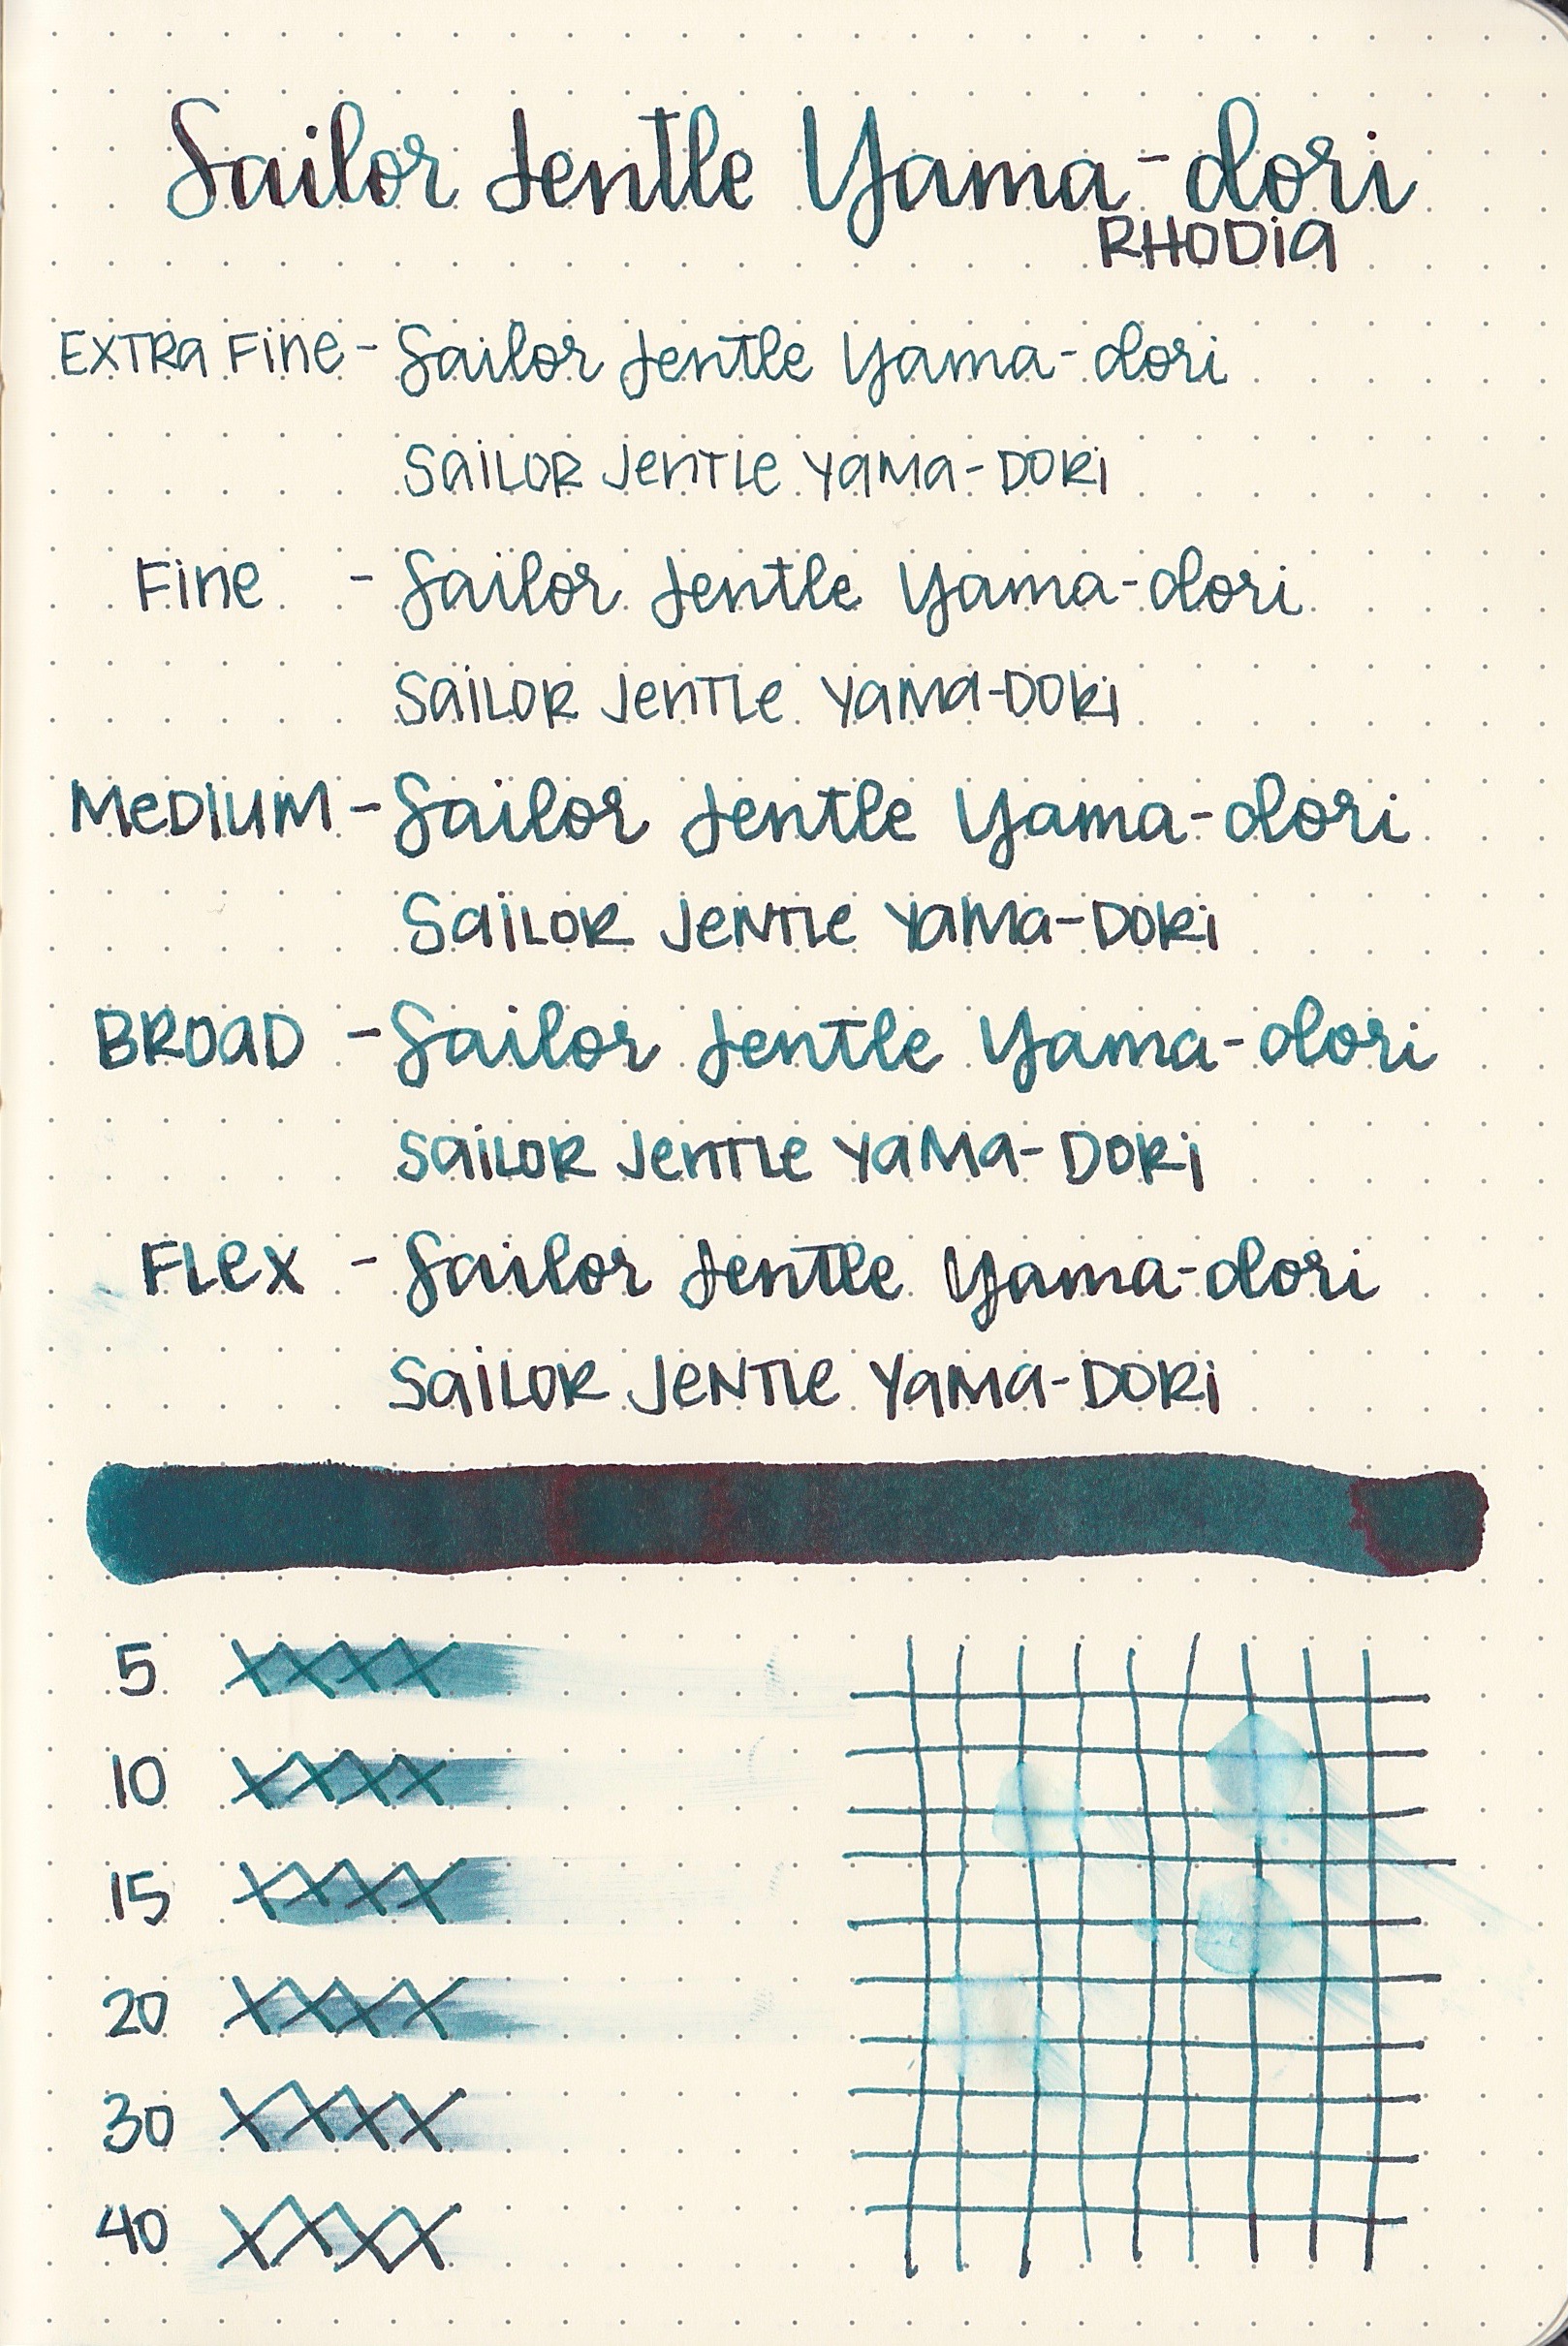 Sailor Jentle Yama-dori
RHODIA
EXTRA FINE - Sailor Jentle Yama-dori
SAILOR JENTLE YAMA-DORI
FINE - Sailor Jentle Yama-dori
SAILOR JENTLE YAMA-DORI
MEDIUM - Sailor Jentle Yama-dori
SAILOR JENTLE YAMA-DORI
BROAD - Sailor Jentle Yama-dori
SAILOR JENTLE YAMA-DORI
FLEX - Sailor Jentle Yama-dori
SAILOR JENTLE YAMA-DORI
5 XXXX
10 XXXX
15 XXXX
20 XXXX
30 XXXX
40 XXXX